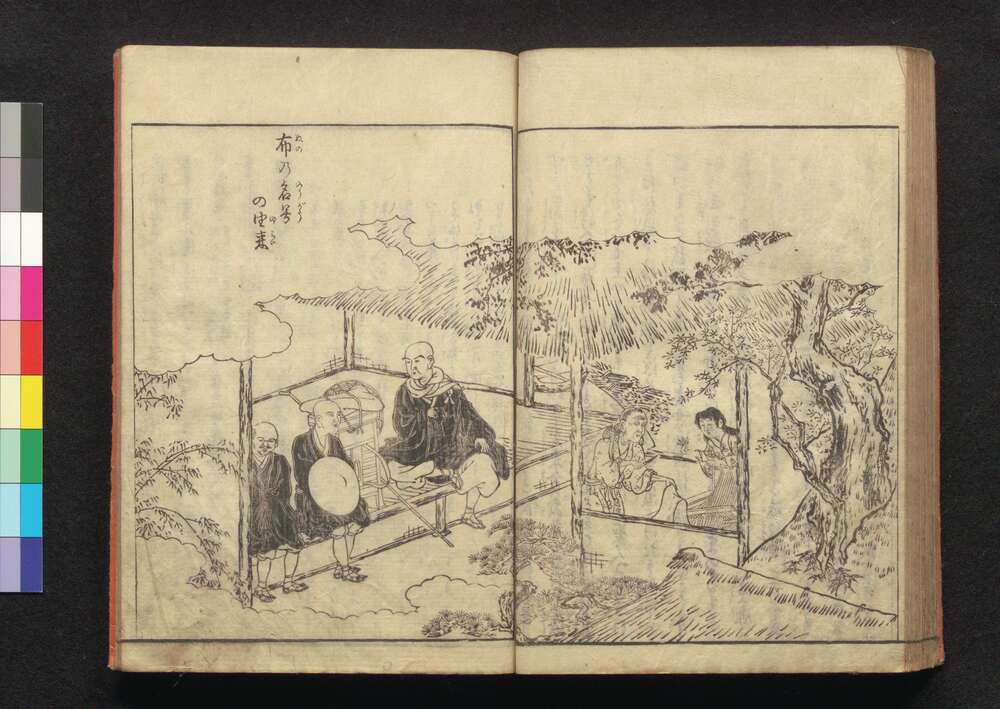 布の名号
の由来